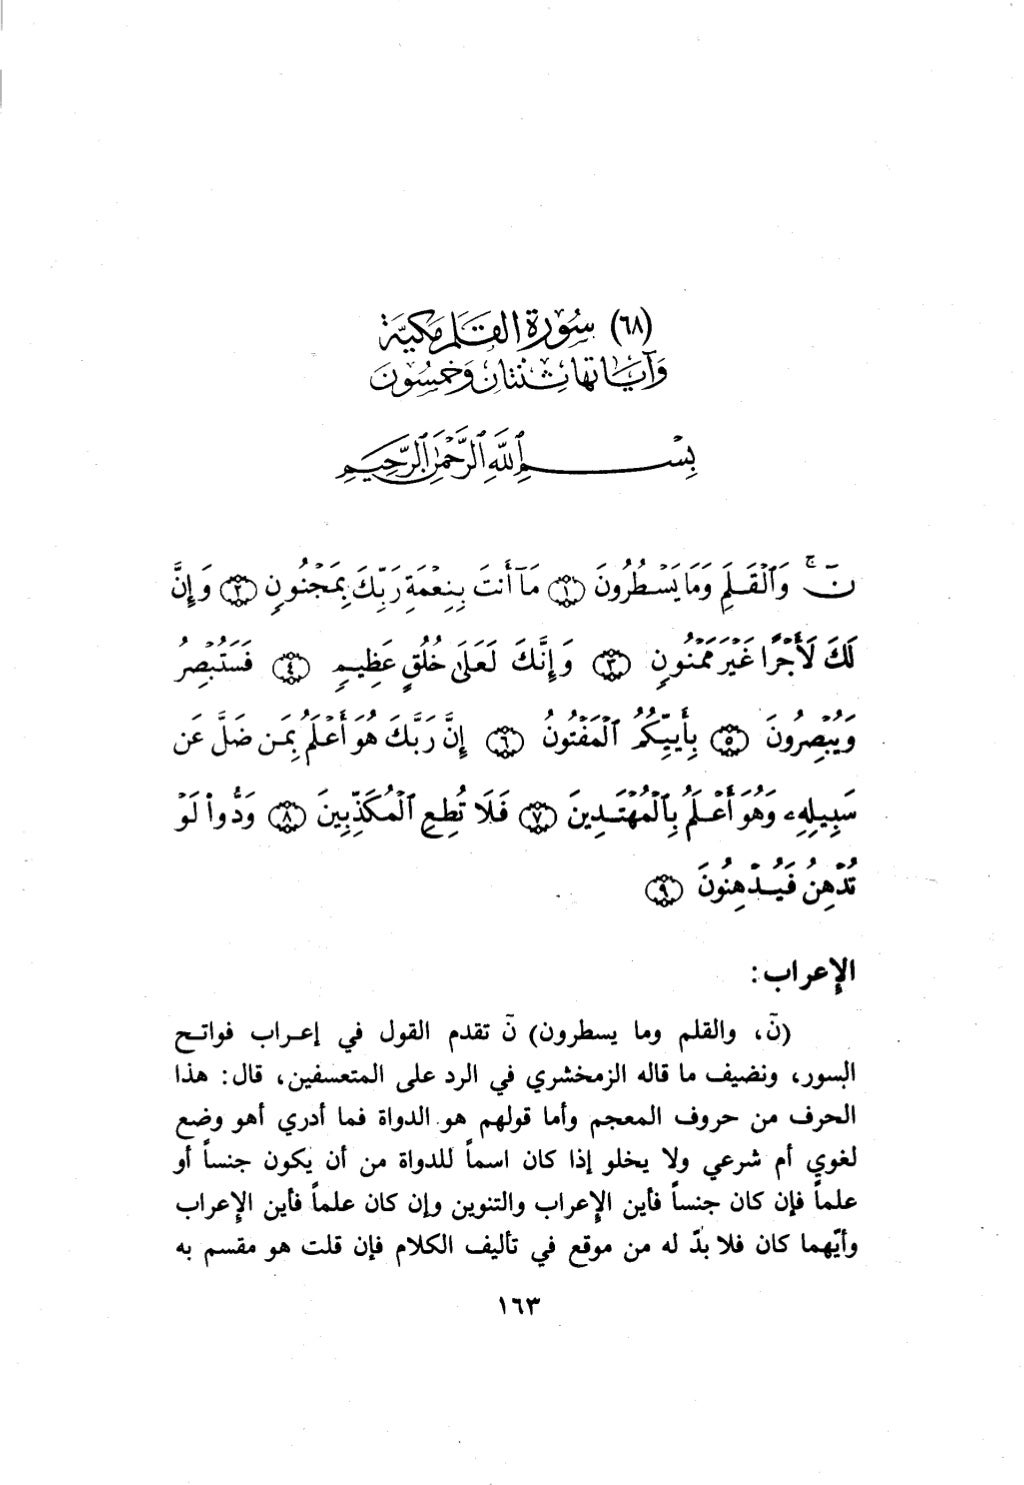 (٦٨) سُورَة القَلَم مَكيَّة
وَآيَاتهَا ثِنْتَان وَخَمْسُونَ
بِسْمِ ٱللَّهِ ٱلرَّحْمَٰنِ ٱلرَّحِيمِ
نٓ ۚ وَٱلْقَلَمِ وَمَا يَسْطُرُونَ ﴿١﴾ مَآ أَنتَ بِنِعْمَةِ رَبِّكَ بِمَجْنُونٍ ﴿٢﴾ وَإِنَّ
لَكَ لَأَجْرًا غَيْرَ مَمْنُونٍ ﴿٣﴾ وَإِنَّكَ لَعَلَىٰ خُلُقٍ عَظِيمٍ ﴿٤﴾ فَسَتُبْصِرُ
وَيُبْصِرُونَ ﴿٥﴾ بِأَييِّكُمُ ٱلْمَفْتُونُ ﴿٦﴾ إِنَّ رَبَّكَ هُوَ أَعْلَمُ بِمَن ضَلَّ عَن
سَبِيلِهِۦ وَهُوَ أَعْلَمُ بِٱلْمُهْتَدِينَ ﴿٧﴾ فَلَا تُطِعِ ٱلْمُكَذِّبِينَ ﴿٨﴾ وَدُّوا۟ لَوْ
تُدْهِنُ فَيُدْهِنُونَ ﴿٩﴾
الإعراب:
(نٓ، والقلم وما يسطرون) نٓ تقدم القول في إعراب فواتح
السور، ونضيف ما قاله الزمخشري في الرد على المتعسفين، قال: هذا
الحرف من حروف المعجم وأما قولهم هو الدواة فما أدري أهو وضع
لغوي أم شرعي ولا يخلو إذا كان اسماً للدواة من أن يكون جنساً أو
علماً فإن كان جنساً فأين الإعراب والتنوين وإن كان علماً فأين الإعراب
وأيّهما كان فلا بدّ له من موقع في تأليف الكلام فإن قلت هو مقسم به
١٦٣